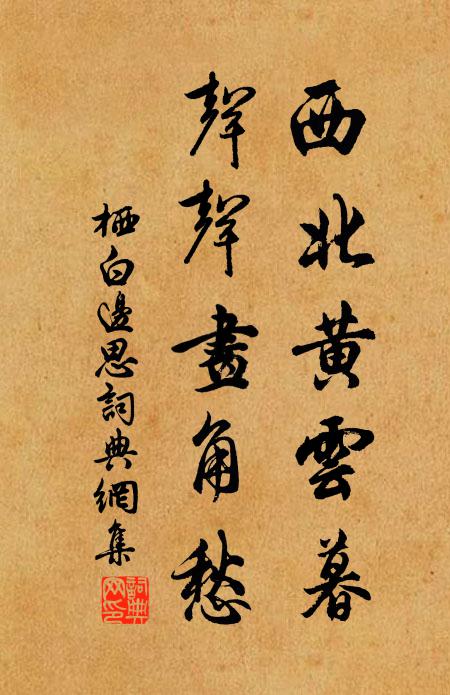 西北黄雲暮
聲聲畫角愁
栖白邊思詞典網集
詞典網印